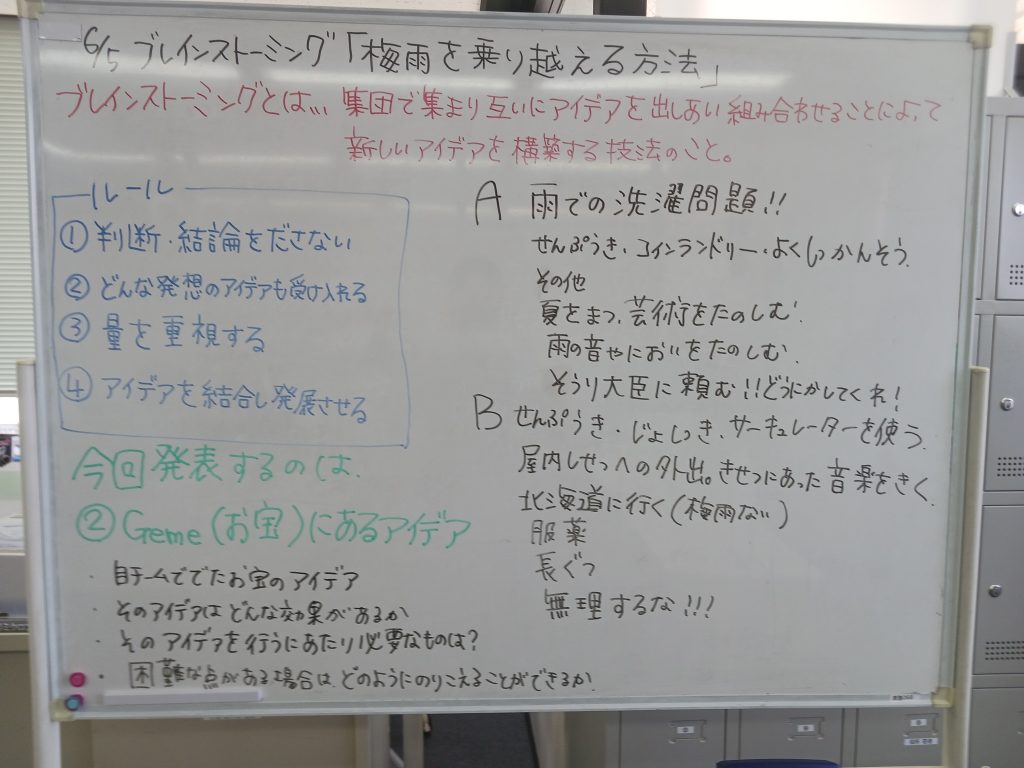 6/5 ブレインストーミング「梅雨を乗り越える方法」
ブレインストーミングとは、、、集団で集まり互いにアイデアを出しあい組み合わせることによって
新しいアイデアを構築する技法のこと。
ルール
① 判断・結論をださない
② どんな発想のアイデアも受け入れる
③ 量を重視する
④ アイデアを結合し発展させる
今回発表するのは、
② Geme(お宝)にあるアイデア
・自チームででたお宝のアイデア
・そのアイデアはどんな効果があるか
・そのアイデアを行うにあたり必要なものは?
・困難な点がある場合は、どのようにのりこえることができるか
A 雨での洗濯問題!!
せんぷうき・コインランドリー・よくしつかんそう、
その他
夏をまつ、芸術をたのしむ、
雨の音やにおいをたのしむ、
そうり大臣に頼む!!どうにかしてくれ!
B せんぷうき・じょしつき、サーキュレーターを使う、
屋内しせつへの外出。きせつにあった音楽をきく、
北海道に行く(梅雨ない)
服薬
長ぐつ
無理するな!!!